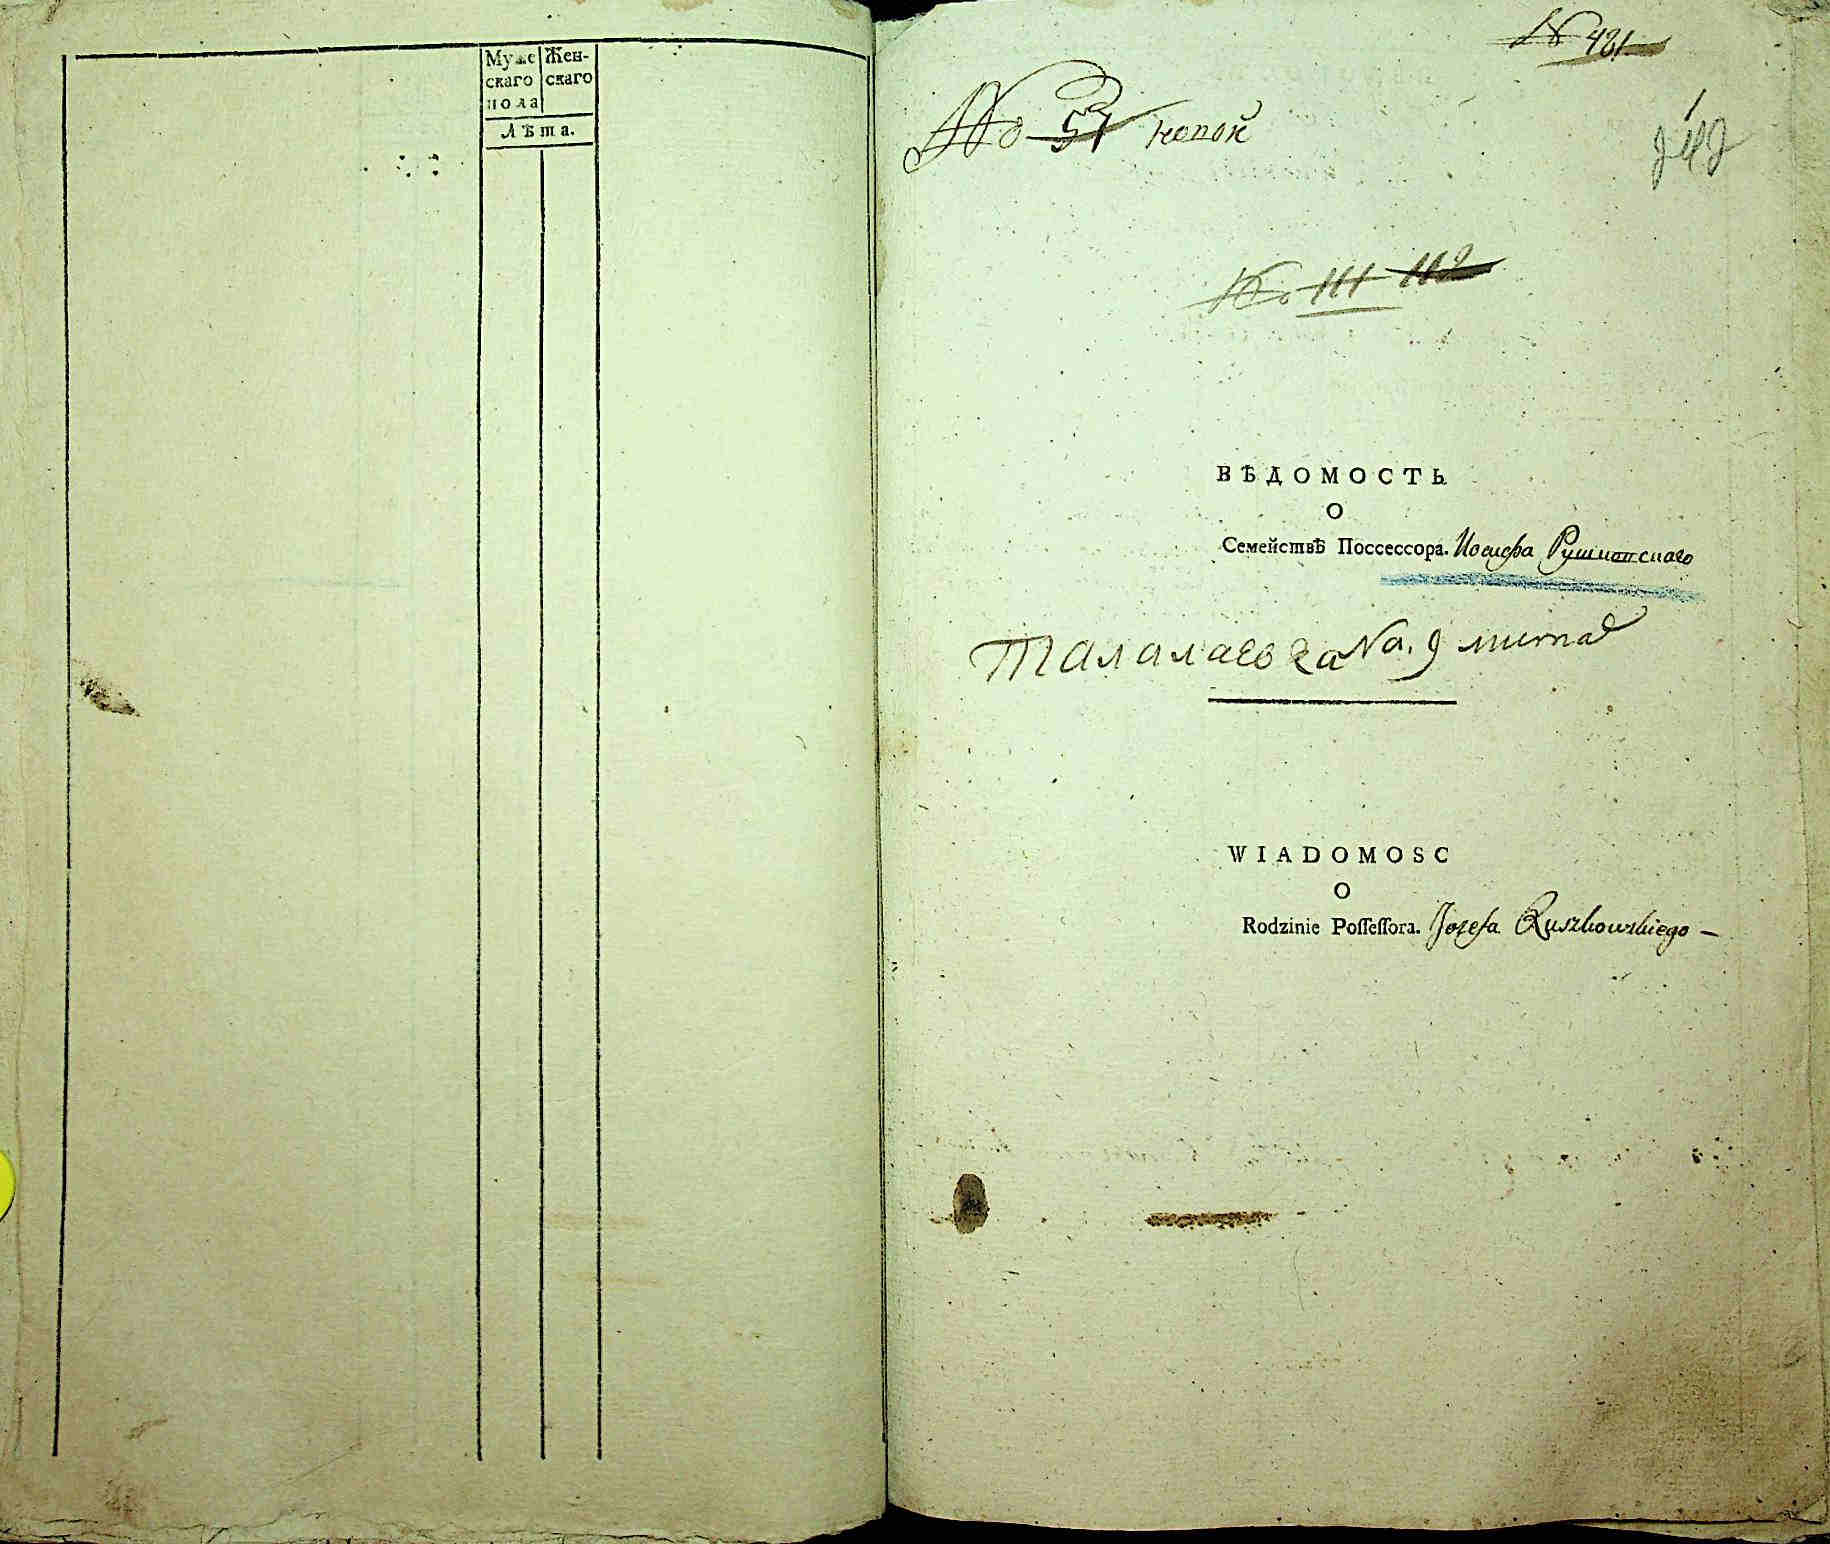 Муже
скаго
пола
Жен-
скаго
Лѣта.
№ 421
No 57
No 111 112
ВѢДОМОСТЬ
О
Семействѣ Поссессора. Иосифа Рушковскаго
Талалаевка No. 9 листа
WIADOMOSC
O
Rodzinie Poſſeſſora. Jozefa Ruszkowskiego —